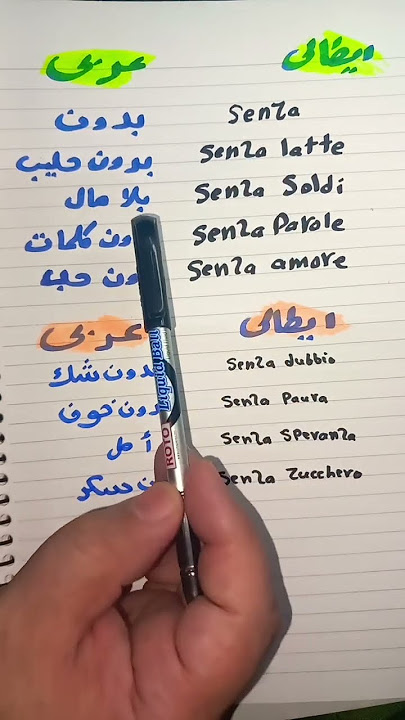 عربي ايطالي
بدون Senza
بدون حليب Senza latte
بلا مال Senza Soldi
كلمات Senza Parole
حب Senza amore
عربي ايطالي
بدون شك Senza dubbio
خوف Senza Paura
أمل Senza Speranza
سكر Senza Zucchero
ROTO Liquid Ball